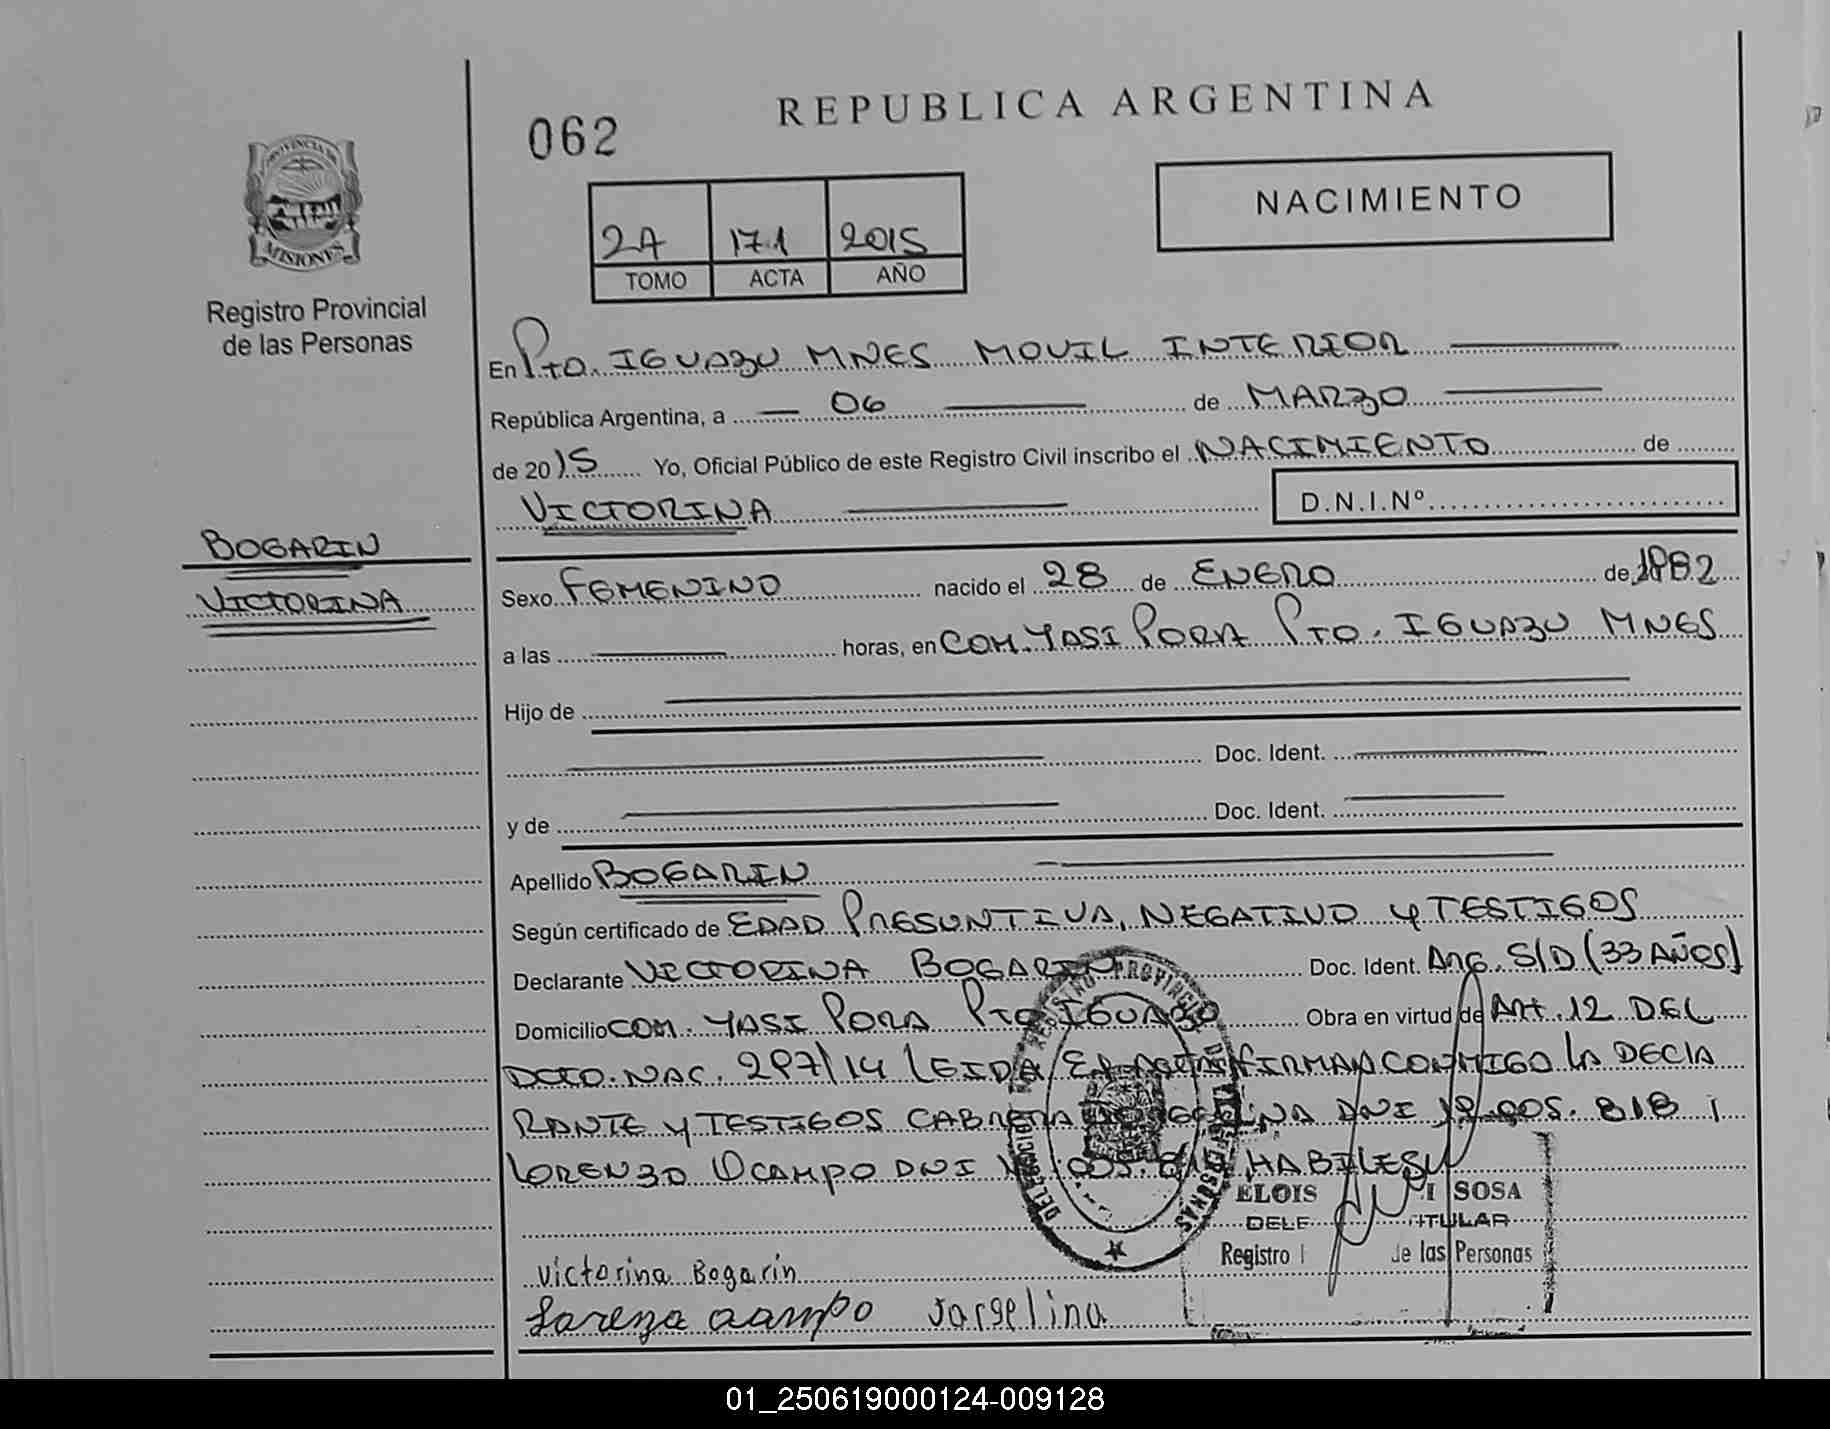 062
REPUBLICA ARGENTINA
PROVINCIA DE
MISIONES
Registro Provincial
de las Personas
NACIMIENTO
2A 171 2015
TOMO ACTA AÑO
En Pto. IGUAZU MNES MOVIL INTERIOR
República Argentina, a 06 de MARZO
de 2015 Yo, Oficial Público de este Registro Civil inscribo el NACIMIENTO de
VICTORINA
D.N.I.Nº
BOGARIN
VICTORINA
Sexo FEMENINO nacido el 28 de ENERO de 1982
a las horas, en COM. YASI PORA PTO. IGUAZU MNES
Hijo de
Doc. Ident.
y de Doc. Ident.
Apellido BOGARIN
Según certificado de EDAD PRESUNTIVA, NEGATIVO y TESTIGOS
Declarante VICTORINA BOGARIN Doc. Ident. Arg. S/D (33 AÑOS)
Domicilio COM. YASI PORA PTO IGUAZU Obra en virtud de Art. 12 DEL
DCTO. NAC. 297/14 LEIDA EL ACTA FIRMAN CONMIGO LA DECLA
RANTE y TESTIGOS CABRERA DNI
LORENZO OCAMPO DNI HABILES
ELOIS SOSA
DELE TITULAR
Registro de las Personas
Victorina Bogarin
Lorenzo ocampo Jorgelina
01_250619000124-009128